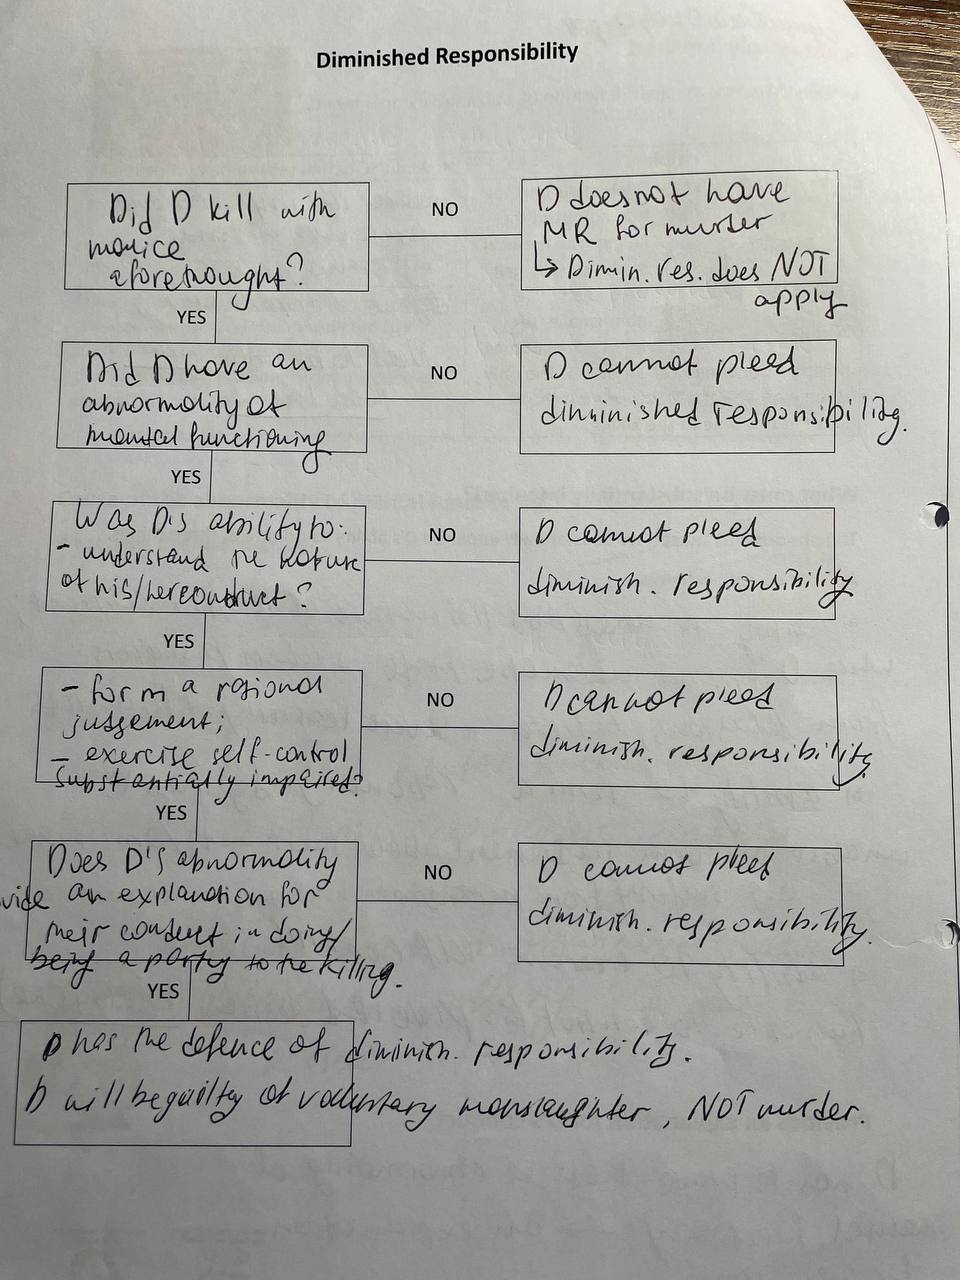 Diminished Responsibility
Did D kill with
malice
aforethought?
NO
D does not have
MR for murder
↳ Dimin. res. does NOT
apply
YES
Did D have an
abnormality of
mental functioning
NO
D cannot plead
diminished responsibility.
YES
Was D's ability to:
- understand the nature
of his/her conduct?
NO
D cannot plead
diminish. responsibility
YES
- form a rational
judgement;
- exercise self-control
substantially impaired?
NO
D cannot plead
diminish. responsibility
YES
Does D's abnormality
vide an explanation for
their conduct in doing/
being a party to the killing.
NO
D cannot plead
diminish. responsibility.
YES
D has the defence of diminish. responsibility.
D will be guilty of voluntary manslaughter, NOT murder.